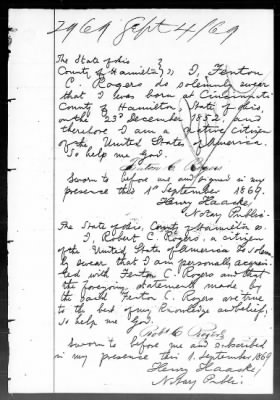 2969 Sept 4/69
The State of Ohio }
County of Hamilton } ss I, Fenton
C. Rogers do solemnly swear
that I was born at Cincinnati
County of Hamilton, State of Ohio,
on the 23d December 1852 and
therefore I am a native citizen
of the United States of America.
So help me God.
Fenton C. Rogers
Sworn to before me and signed in my
presence this 1st September 1869.
Henry Haacke
Notary Public
The State of Ohio, County of Hamilton ss.
I, Robert C. Rogers, a citizen
of the United States of America do solemn
ly swear that I am personally acquain
ted with Fenton C. Rogers and that
the foregoing statements made by
the said Fenton C. Rogers are true
to the best of my knowledge and belief.
So help me God.
Robt C. Rogers
Sworn to before me and subscribed
in my presence this 1. September 1869
Henry Haacke
Notary Public